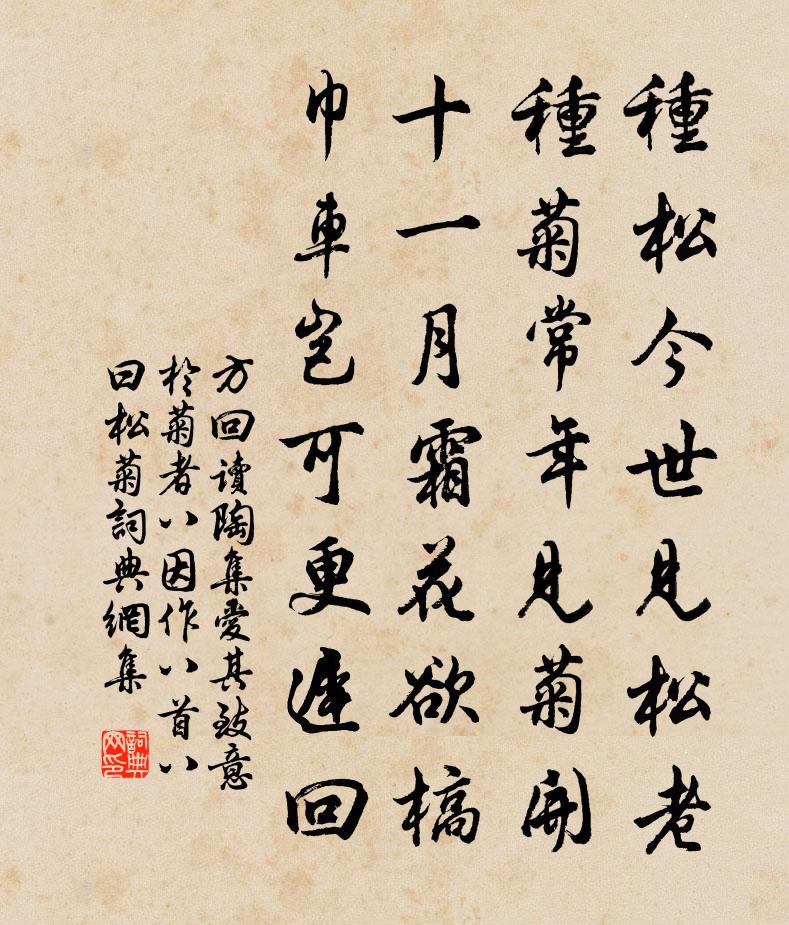 種松今世見松老
種菊常年見菊開
十一月霜花欲槁
巾車豈可更遲回
方回讀陶集愛其致意
於菊者八因作八首八
曰松菊詞典網集
詞典網印